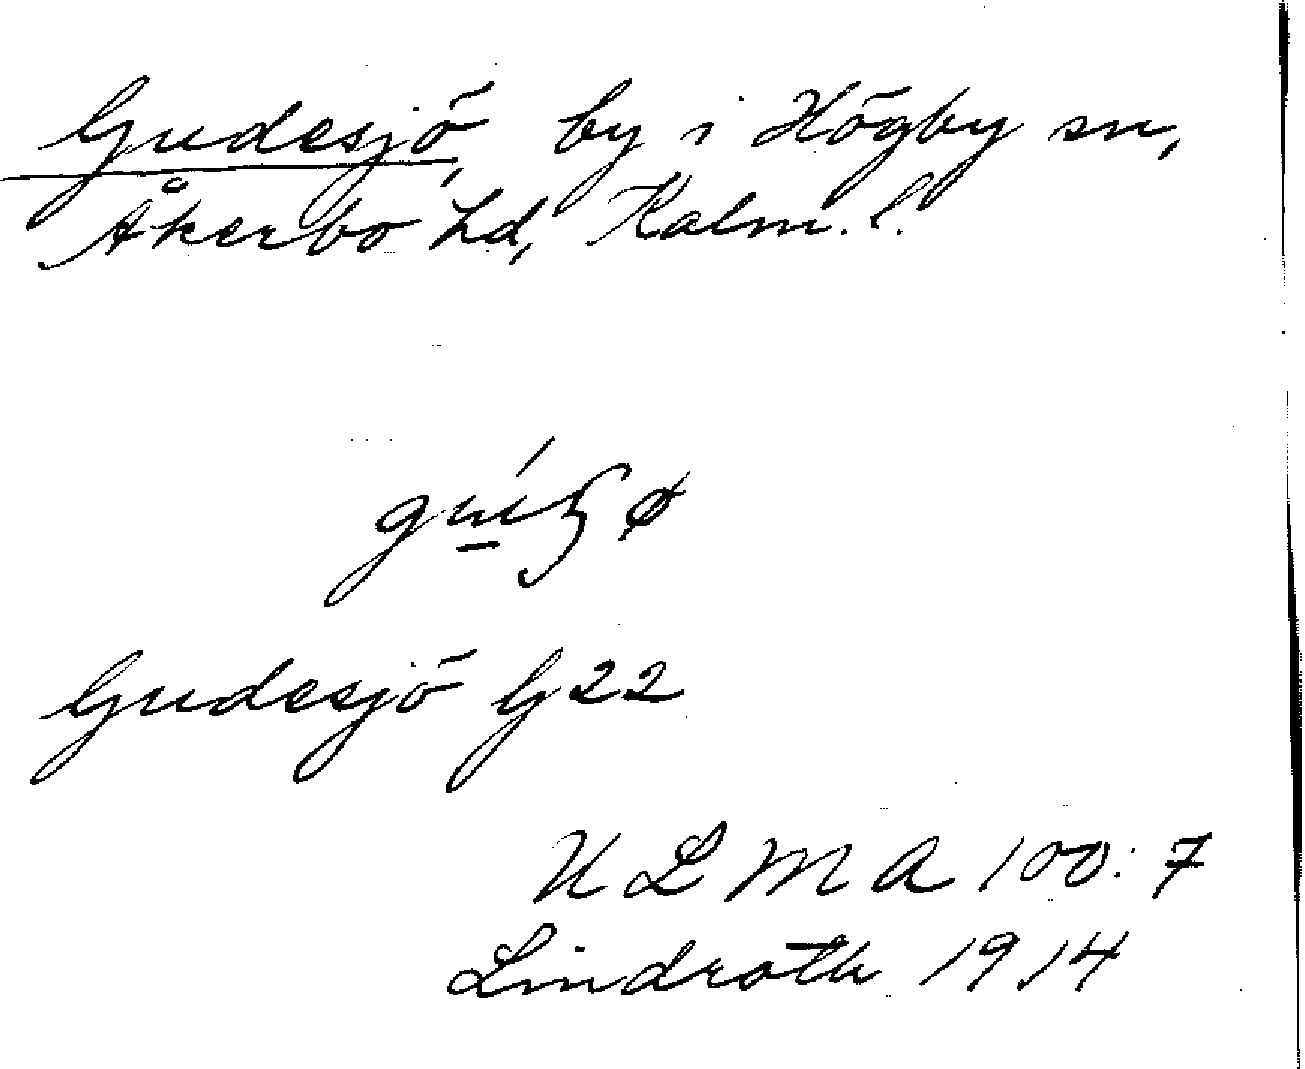 Gudesjö, by i Högby sn,
Åkerbo hd, Kalm. l.
Gudesjö G 22
ULMA 100:7
Lindroth 1914